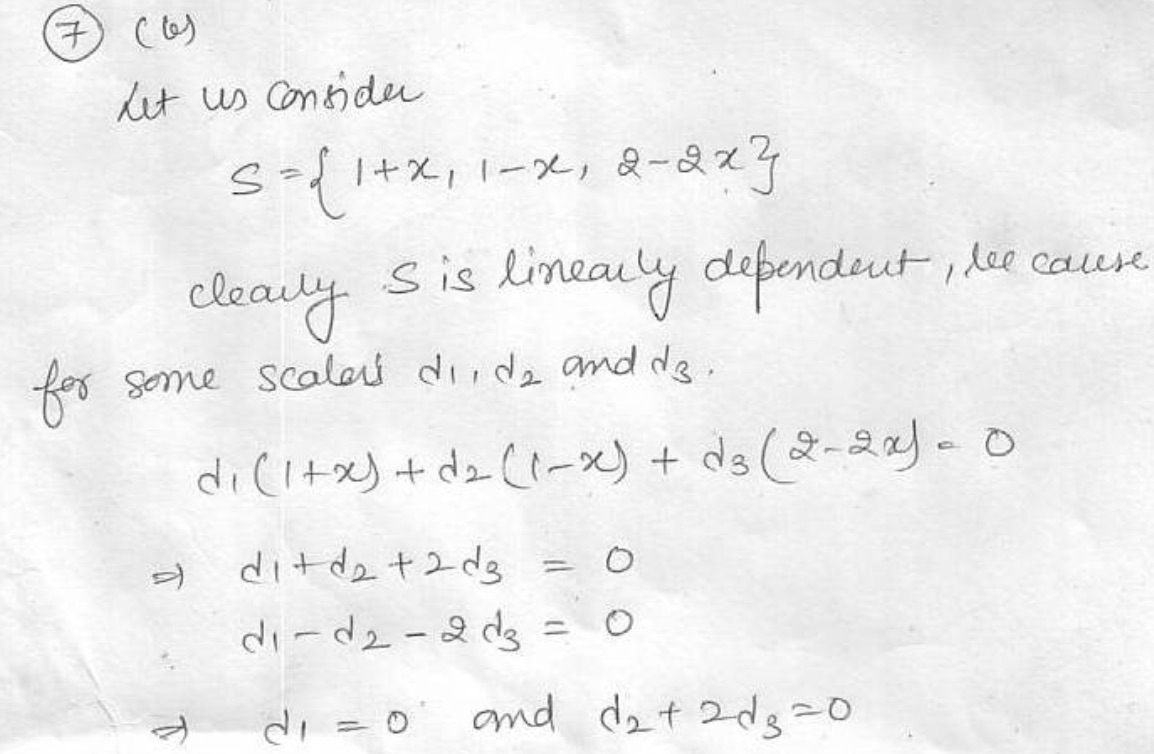 ⑦ (b)
Let us Consider
S = { 1+x, 1-x, 2-2x}
clearly S is linearly dependent, because
for some scalers d1, d2 and d3.
d1(1+x) + d2(1-x) + d3(2-2x) = 0
⇒ d1+d2+2d3 = 0
d1-d2-2d3 = 0
⇒ d1 = 0 and d2+2d3=0